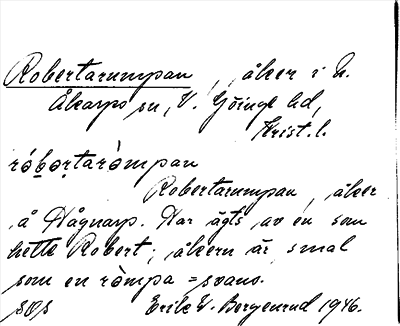 Robertarumpan, åker i N.
Åkarps sn, V. Göinge hd,
Krist. l.
róbo̤rtaròmpan
Robertarumpan, åker
å Hågnarp. Har ägts av en som
hette Robert; åkern är smal
som en ròmpa = svans.
Erik W. Bergenrud 1946.